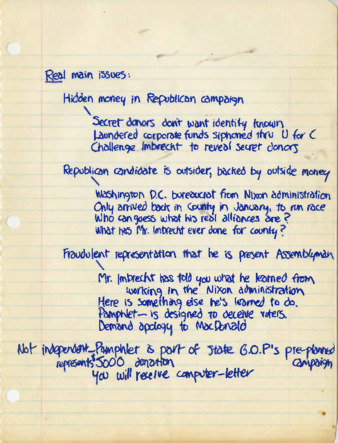 Real main issues:
Hidden money in Republican campaign
Secret donors don't want identity known
Laundered corporate funds siphoned thru U for C
Challenge Imbrecht to reveal secret donors
Republican candidate is outsider, backed by outside money
Washington D.C. bureaucrat from Nixon administration
Only arrived back in County in January, to run race
Who can guess what his real alliances are?
What has Mr. Imbrecht ever done for county?
Fraudulent representation that he is present Assemblyman
Mr. Imbrecht has told you what he learned from
working in the Nixon administration.
Here is something else he's learned to do.
Pamphlet — is designed to deceive voters.
Demand apology to MacDonald
Not independent — Pamphlet is part of state G.O.P's pre-planned
represents $5000 donation campaign
You will receive computer-letter